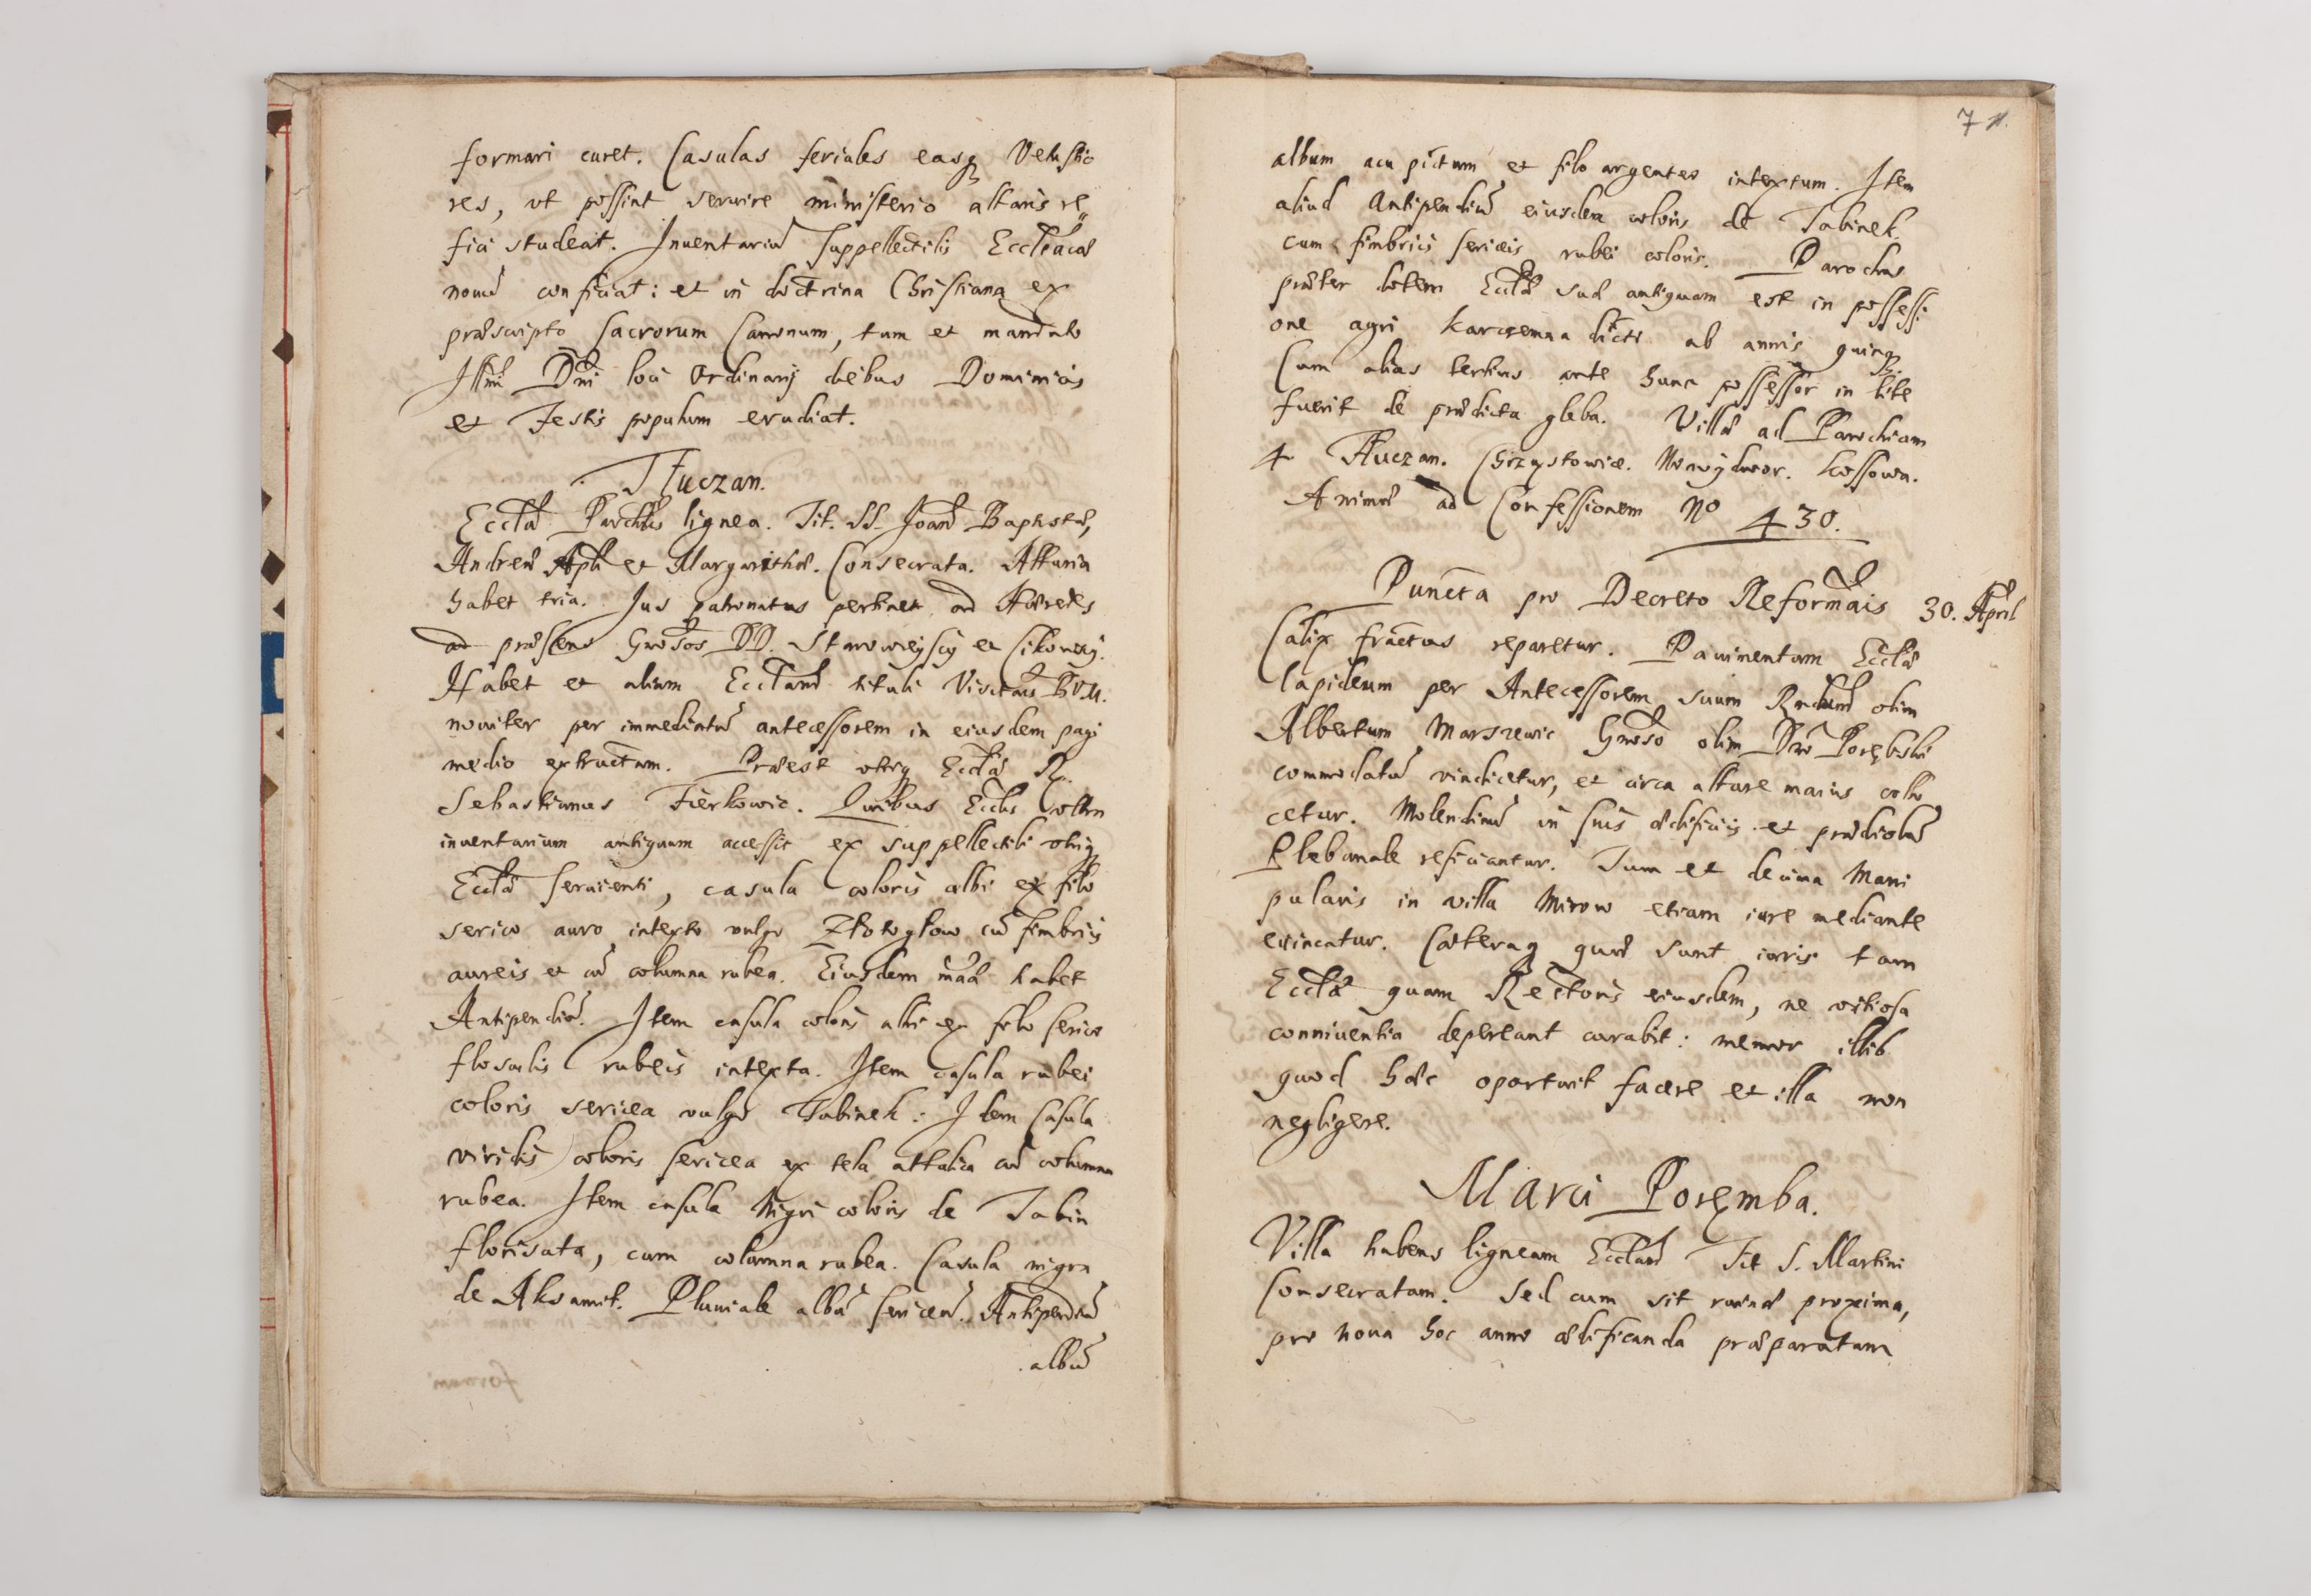 formari curet. Casulas feriales easq3 Vetustio
res, vt possint seruire ministerio altaris re„
fici studeat. Inuentariũ suppellectilis Eccl̃eacæ
nouũ conficiat: et in doctrina Christiana ex
præscripto Sacrorum Canonum, tum et mandato
Illm̃i Dñi loci Ordinarij diebus Dominicis
et Festis populum erudiat.
Tłuczan.
Eccl̃a Parchl̃is lignea. Tit. SS. Joañ Baptistæ,
Andreæ Apl̃i et Margarithæ. Consecrata. Altaria
habet tria. Jus patronatus pertinet ad Hæredes
ad præsens Gñosos DD. Starowieyscy et Cikowscy.
Habet et aliam Eccl̃am tituli Visitaõis BVM.
nouiter per immediatũ antecessorem in eiusdem pagi
medio extructam. Præest vtriq3 Eccl̃æ R.
Sebastianus Fierkowic. Quibus Eccl̃is vltra
inuentarium antiquum accessit ex suppellectili vtriq3
Eccl̃æ seruienti, casula coloris albi ex filo
serico auro intexto vulgo Złotogłow cũ fimbrijs
aureis et cũ columna rubea. Eiusdem mãæ habet
Antipendiũ. Item casula coloris albi ex filo serico
flosculis rubeis intexta. Item casula rubei
coloris sericea vulgo Tabinek: Item Casula
viridis coloris sericea ex tela attalica cũ columna
rubea. Item casula Nigri coloris de Tabin
florisata, cum columna rubea. Casula nigra
de Aksamit. Pluuiale albũ sericeũ. Antipendiũ
albũ
7
album acu pictum et filo argenteo intextum. Item
aliud Antipendiũ eiusdem coloris de Tabinek
cum fimbriis sericeis rubei coloris. Parochus
præter dotem Eccl̃æ suæ antiquam est in possessi
one agri Karczemna dicti ab annis quinq3.
Cum alias tertius ante hunc possessor in lite
fuerit de prædicta gleba. Villæ ad Parochiam
4 Tłuczan. Chrząstowice. Nowydwor. Kossowa.
Animæ ad Confessionem No 430.
Puncta pro Decreto Reformaõis 30. April
Calix fractus reparetur. Pauimentum Eccl̃æ
lapideum per Antecessorem suum Rndum olim
Albertum Marszewic Gñoso olim Dño Porębski
commodatũ vindicetur, et circa altare maius collo
cetur. Molendinũ in suis ædificiis et prædiolũ
Plebanale reficiantur. Tum et decima Mani
pularis in villa Mirow etiam iure mediante
euincatur. Cæteraq3 quæ sunt iuris tam
Eccl̃æ quam Rectoris eiusdem, ne vitiosa
conniuentia depereant curabit: memor illius
quod hæc oportuit facere et illa non
negligere.
Marci Poręmba.
Villa habens ligneam Eccl̃am Tit S. Martini
Consecratam. Sed cum sit ruinæ proxima,
pro noua hoc anno ædificanda præparatam